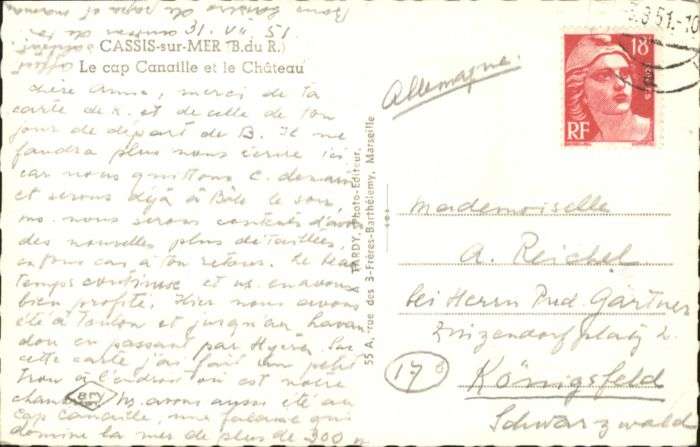 CASSIS-sur-MER (B.du R.)
Le cap Canaille et le Château
Chère Anne, merci de ta
carte de x. et de celle de ton
jour de départ de B. Il ne
faudra plus nous écrire ici
car nous quittons C. demain
et serons déjà à Bâle le soir,
ms. nous serons contents d'avoir
des nouvelles plus détaillées,
en tous cas à ton retour. Le beau
temps continue et ns. en avons
bien profité. Hier nous avons
été à Toulon et jusqu'au
en passant par Hyères. Sur
cette carte j'ai fait un petit
trou à l'endroit où est notre
chambre. Ns. avons aussi été au
Cap Canaille, une falaise qui
domine la mer de plus de 300 m
Bons baisers de papa et maman
A. TARDY, Photo-Editeur,
55 A, rue des 3-Frères-Barthélemy, Marseille
Allemagne.
18F
POSTES
RF
51.-10
Mademoiselle
A. Reichel
bei Herrn Pud. Gärtner
Zinzendorfplatz 2.
17b
Königsfeld
Schwarzwald